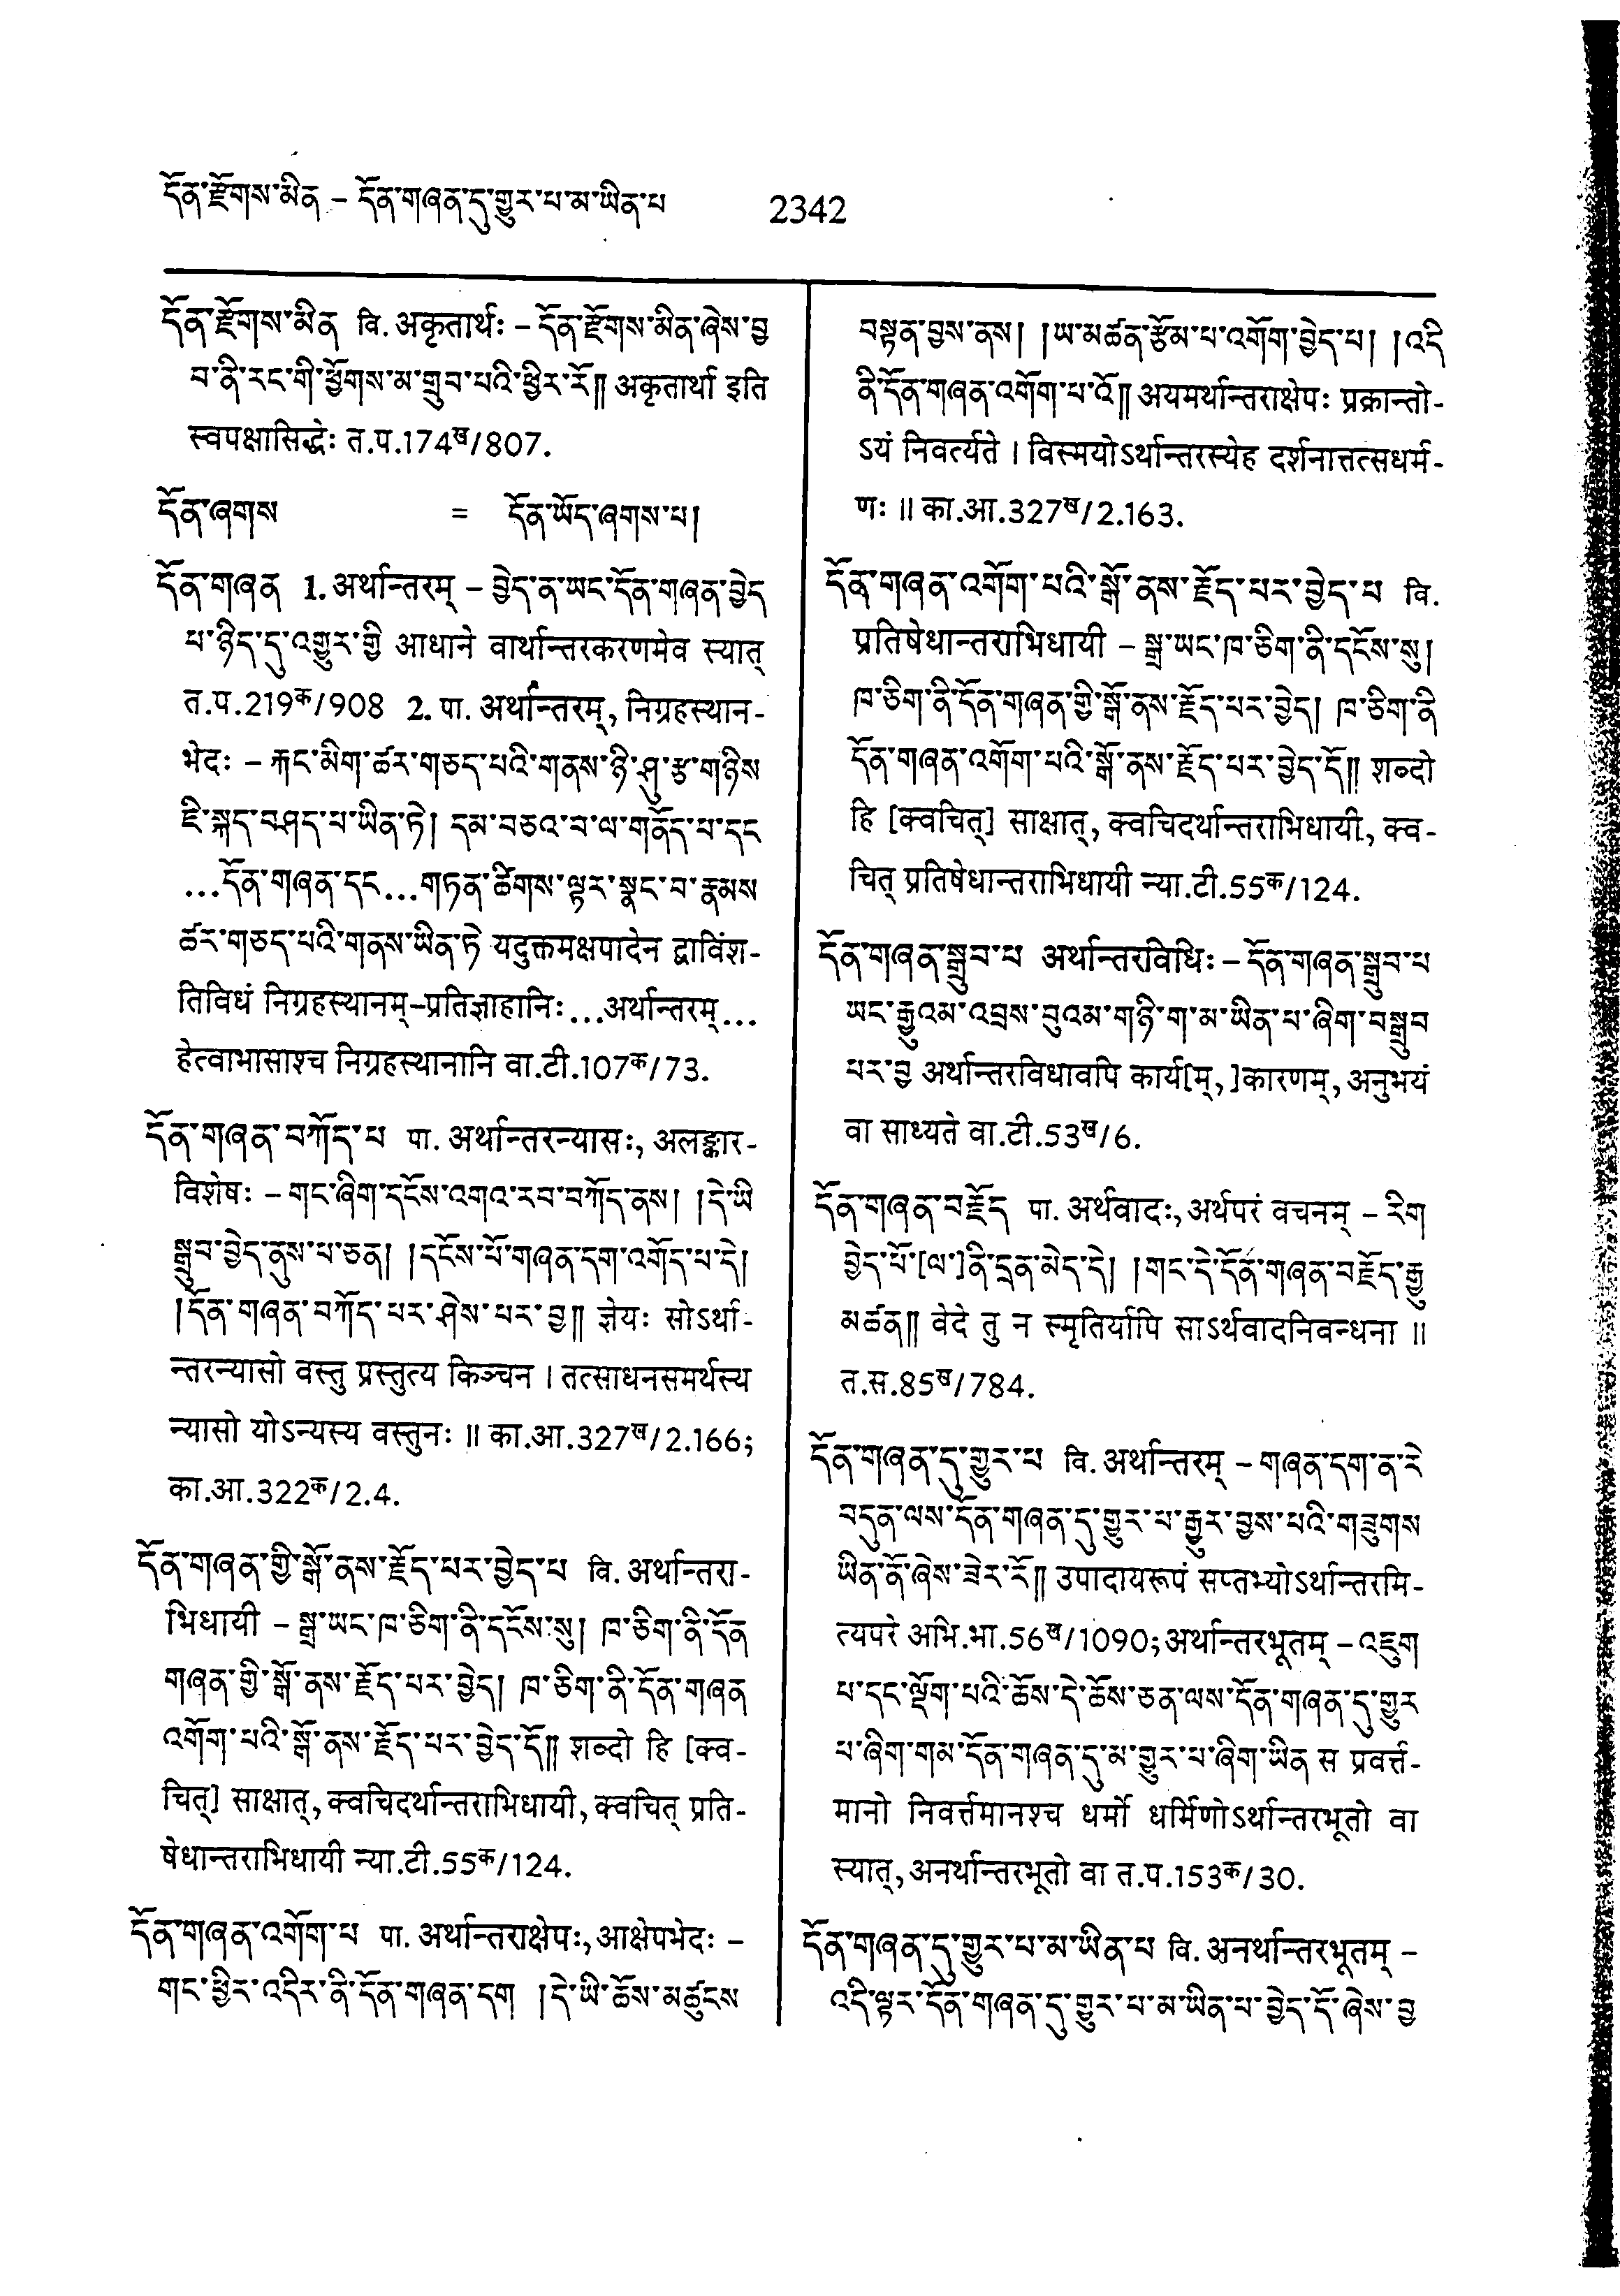 དོན་རྫོགས་མིན – དོན་གཞན་དུ་གྱུར་པ་མ་ཡིན་པ 2342
དོན་རྫོགས་མིན वि. अकृतार्थः – དོན་རྫོགས་མིན་ཞེས་བྱ
བ་ནི་རང་གི་ཕྱོགས་མ་གྲུབ་པའི་ཕྱིར་རོ༎ अकृतार्था इति
स्वपक्षासिद्धेः त.प.174ख/807.
དོན་ཞགས = དོན་ཡོད་ཞགས་པ།
དོན་གཞན 1. अर्थान्तरम् – བྱེད་ན་ཡང་དོན་གཞན་བྱེད
པ་ཉིད་དུ་འགྱུར་གྱི आधाने वार्थान्तरकरणमेव स्यात्
त.प.219क/908 2. पा. अर्थान्तरम्, निग्रहस्थान-
भेदः – རྐང་མིག་ཚར་གཅད་པའི་གནས་ཉི་ཤུ་རྩ་གཉིས
ཇི་སྐད་བཤད་པ་ཡིན་ཏེ། དམ་བཅའ་བ་ལ་གནོད་པ་དང
...དོན་གཞན་དང...གཏན་ཚིགས་ལྟར་སྣང་བ་རྣམས
ཚར་གཅད་པའི་གནས་ཡིན་ཏེ यदुक्तमक्षपादेन द्वाविंश-
तिविधं निग्रहस्थानम्-प्रतिज्ञाहानिः...अर्थान्तरम्...
हेत्वाभासाश्च निग्रहस्थानानि वा.टी.107क/73.
དོན་གཞན་བཀོད་པ पा. अर्थान्तरन्यासः, अलङ्कार-
विशेषः – གང་ཞིག་དངོས་འགའ་རབ་བཀོད་ནས། །དེ་ཡི
སྒྲུབ་བྱེད་ནུས་པ་ཅན། །དངོས་པོ་གཞན་དག་འགོད་པ་དེ།
།དོན་གཞན་བཀོད་པར་ཤེས་པར་བྱ༎ ज्ञेयः सोऽर्था-
न्तरन्यासो वस्तु प्रस्तुत्य किञ्चन । तत्साधनसमर्थस्य
न्यासो योऽन्यस्य वस्तुनः ॥ का.आ.327ख/2.166;
का.आ.322क/2.4.
དོན་གཞན་གྱི་སྒོ་ནས་རྗོད་པར་བྱེད་པ वि. अर्थान्तरा-
भिधायी – སྒྲ་ཡང་ཁ་ཅིག་ནི་དངོས་སུ། ཁ་ཅིག་ནི་དོན
གཞན་གྱི་སྒོ་ནས་རྗོད་པར་བྱེད། ཁ་ཅིག་ནི་དོན་གཞན
འགོག་པའི་སྒོ་ནས་རྗོད་པར་བྱེད་དོ༎ शब्दो हि [क्व-
चित्] साक्षात्, क्वचिदर्थान्तराभिधायी, क्वचित् प्रति-
षेधान्तराभिधायी न्या.टी.55क/124.
དོན་གཞན་འགོག་པ पा. अर्थान्तराक्षेपः, आक्षेपभेदः –
གང་ཕྱིར་འདིར་ནི་དོན་གཞན་དག །དེ་ཡི་ཆོས་མཚུངས
བསྟན་བྱས་ནས། །ཡ་མཚན་རྩོམ་པ་འགོག་བྱེད་པ། །འདི
ནི་དོན་གཞན་འགོག་པ་འོ༎ अयमर्थान्तराक्षेपः प्रक्रान्तो-
ऽयं निवर्त्यते । विस्मयोऽर्थान्तरस्येह दर्शनात्तत्सधर्म-
णः ॥ का.आ.327ख/2.163.
དོན་གཞན་འགོག་པའི་སྒོ་ནས་རྗོད་པར་བྱེད་པ वि.
प्रतिषेधान्तराभिधायी – སྒྲ་ཡང་ཁ་ཅིག་ནི་དངོས་སུ།
ཁ་ཅིག་ནི་དོན་གཞན་གྱི་སྒོ་ནས་རྗོད་པར་བྱེད། ཁ་ཅིག་ནི
དོན་གཞན་འགོག་པའི་སྒོ་ནས་རྗོད་པར་བྱེད་དོ༎ शब्दो
हि [क्वचित्] साक्षात्, क्वचिदर्थान्तराभिधायी, क्व-
चित् प्रतिषेधान्तराभिधायी न्या.टी.55क/124.
དོན་གཞན་སྒྲུབ་པ अर्थान्तरविधिः – དོན་གཞན་སྒྲུབ་པ
ཡང་རྒྱུའམ་འབྲས་བུའམ་གཉི་ག་མ་ཡིན་པ་ཞིག་བསྒྲུབ
པར་བྱ अर्थान्तरविधावपि कार्य[म्,]कारणम्, अनुभयं
वा साध्यते वा.टी.53ख/6.
དོན་གཞན་བརྗོད पा. अर्थवादः, अर्थपरं वचनम् – རིག
བྱེད་པོ་[ལ་]ནི་དྲན་མེད་དེ། །གང་དེ་དོན་གཞན་བརྗོད་རྒྱུ
མཚན༎ वेदे तु न स्मृतिर्यापि साऽर्थवादनिबन्धना ॥
त.स.85ख/784.
དོན་གཞན་དུ་གྱུར་པ वि. अर्थान्तरम् – གཞན་དག་ན་རེ
བདུན་ལས་དོན་གཞན་དུ་གྱུར་པ་རྒྱུར་བྱས་པའི་གཟུགས
ཡིན་ནོ་ཞེས་ཟེར་རོ༎ उपादायरूपं सप्तभ्योऽर्थान्तरमि-
त्यपरे अभि.भा.56ख/1090; अर्थान्तरभूतम् – འཇུག
པ་དང་ལྡོག་པའི་ཆོས་དེ་ཆོས་ཅན་ལས་དོན་གཞན་དུ་གྱུར
པ་ཞིག་གམ་དོན་གཞན་དུ་མ་གྱུར་པ་ཞིག་ཡིན स प्रवर्त्त-
मानो निवर्त्तमानश्च धर्मो धर्मिणोऽर्थान्तरभूतो वा
स्यात्, अनर्थान्तरभूतो वा त.प.153क/30.
དོན་གཞན་དུ་གྱུར་པ་མ་ཡིན་པ वि. अनर्थान्तरभूतम् –
འདི་ལྟར་དོན་གཞན་དུ་གྱུར་པ་མ་ཡིན་པ་བྱེད་དོ་ཞེས་བྱ